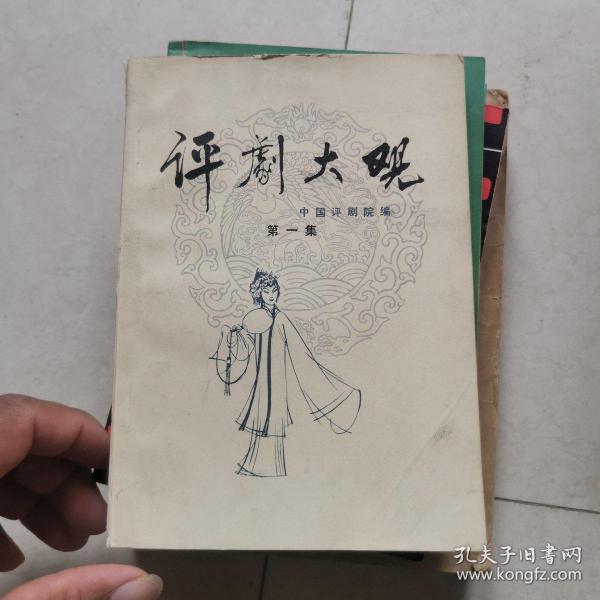 评剧大观
中国评剧院编
第一集
孔夫子旧书网
www.kongfz.com